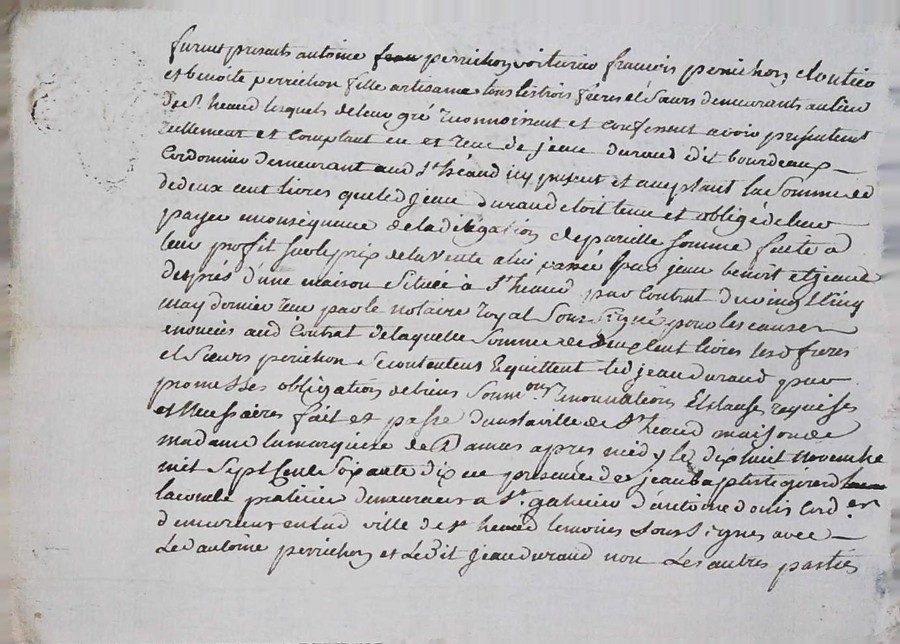 furent presents antoine perrichon voiturier francois perrichon cloutier
et benoite perrichon fille artisanne tous les trois freres et sœurs demeurants au lieu
de st heand lesquels de leur gré reconnoissent et confessent avoir presentement
reellement et comptant eu et receu de jean durand dit bourdeaux
Cordonnier demeurant aud st héand icy present et acceptant la somme de
de deux cent livres que led jean durand etoit tenu et obligé de leur
payer en conséquence de la délégation de pareille somme faite a
leur profit sur le prix de la vente a lui passée par jean benoit et jeanne
després d'une maison située à st heand par Contrat du vingt cinq
may dernier receu par le notaire royal soussigné pour les causes
enoncées aud Contrat de laquelle somme de deux cent livres lesd freres
et sœurs perichon se contentent et quittent led jean durand par
promesses obligation de biens soum.ons renonciations et clauses requises
et necessaires fait et passé dans la ville de st heand maison de
madame la marquise de Damas apres midy le dix huit novembre
mil sept cent soixante dix en presence de jean baptiste girard
laconde praticien demeurant a st galmier d'antoine donis cord.er
demeurant en lad ville de st heand temoins soussignés avec
Led antoine perrichon et led it jean durand non Les autres parties